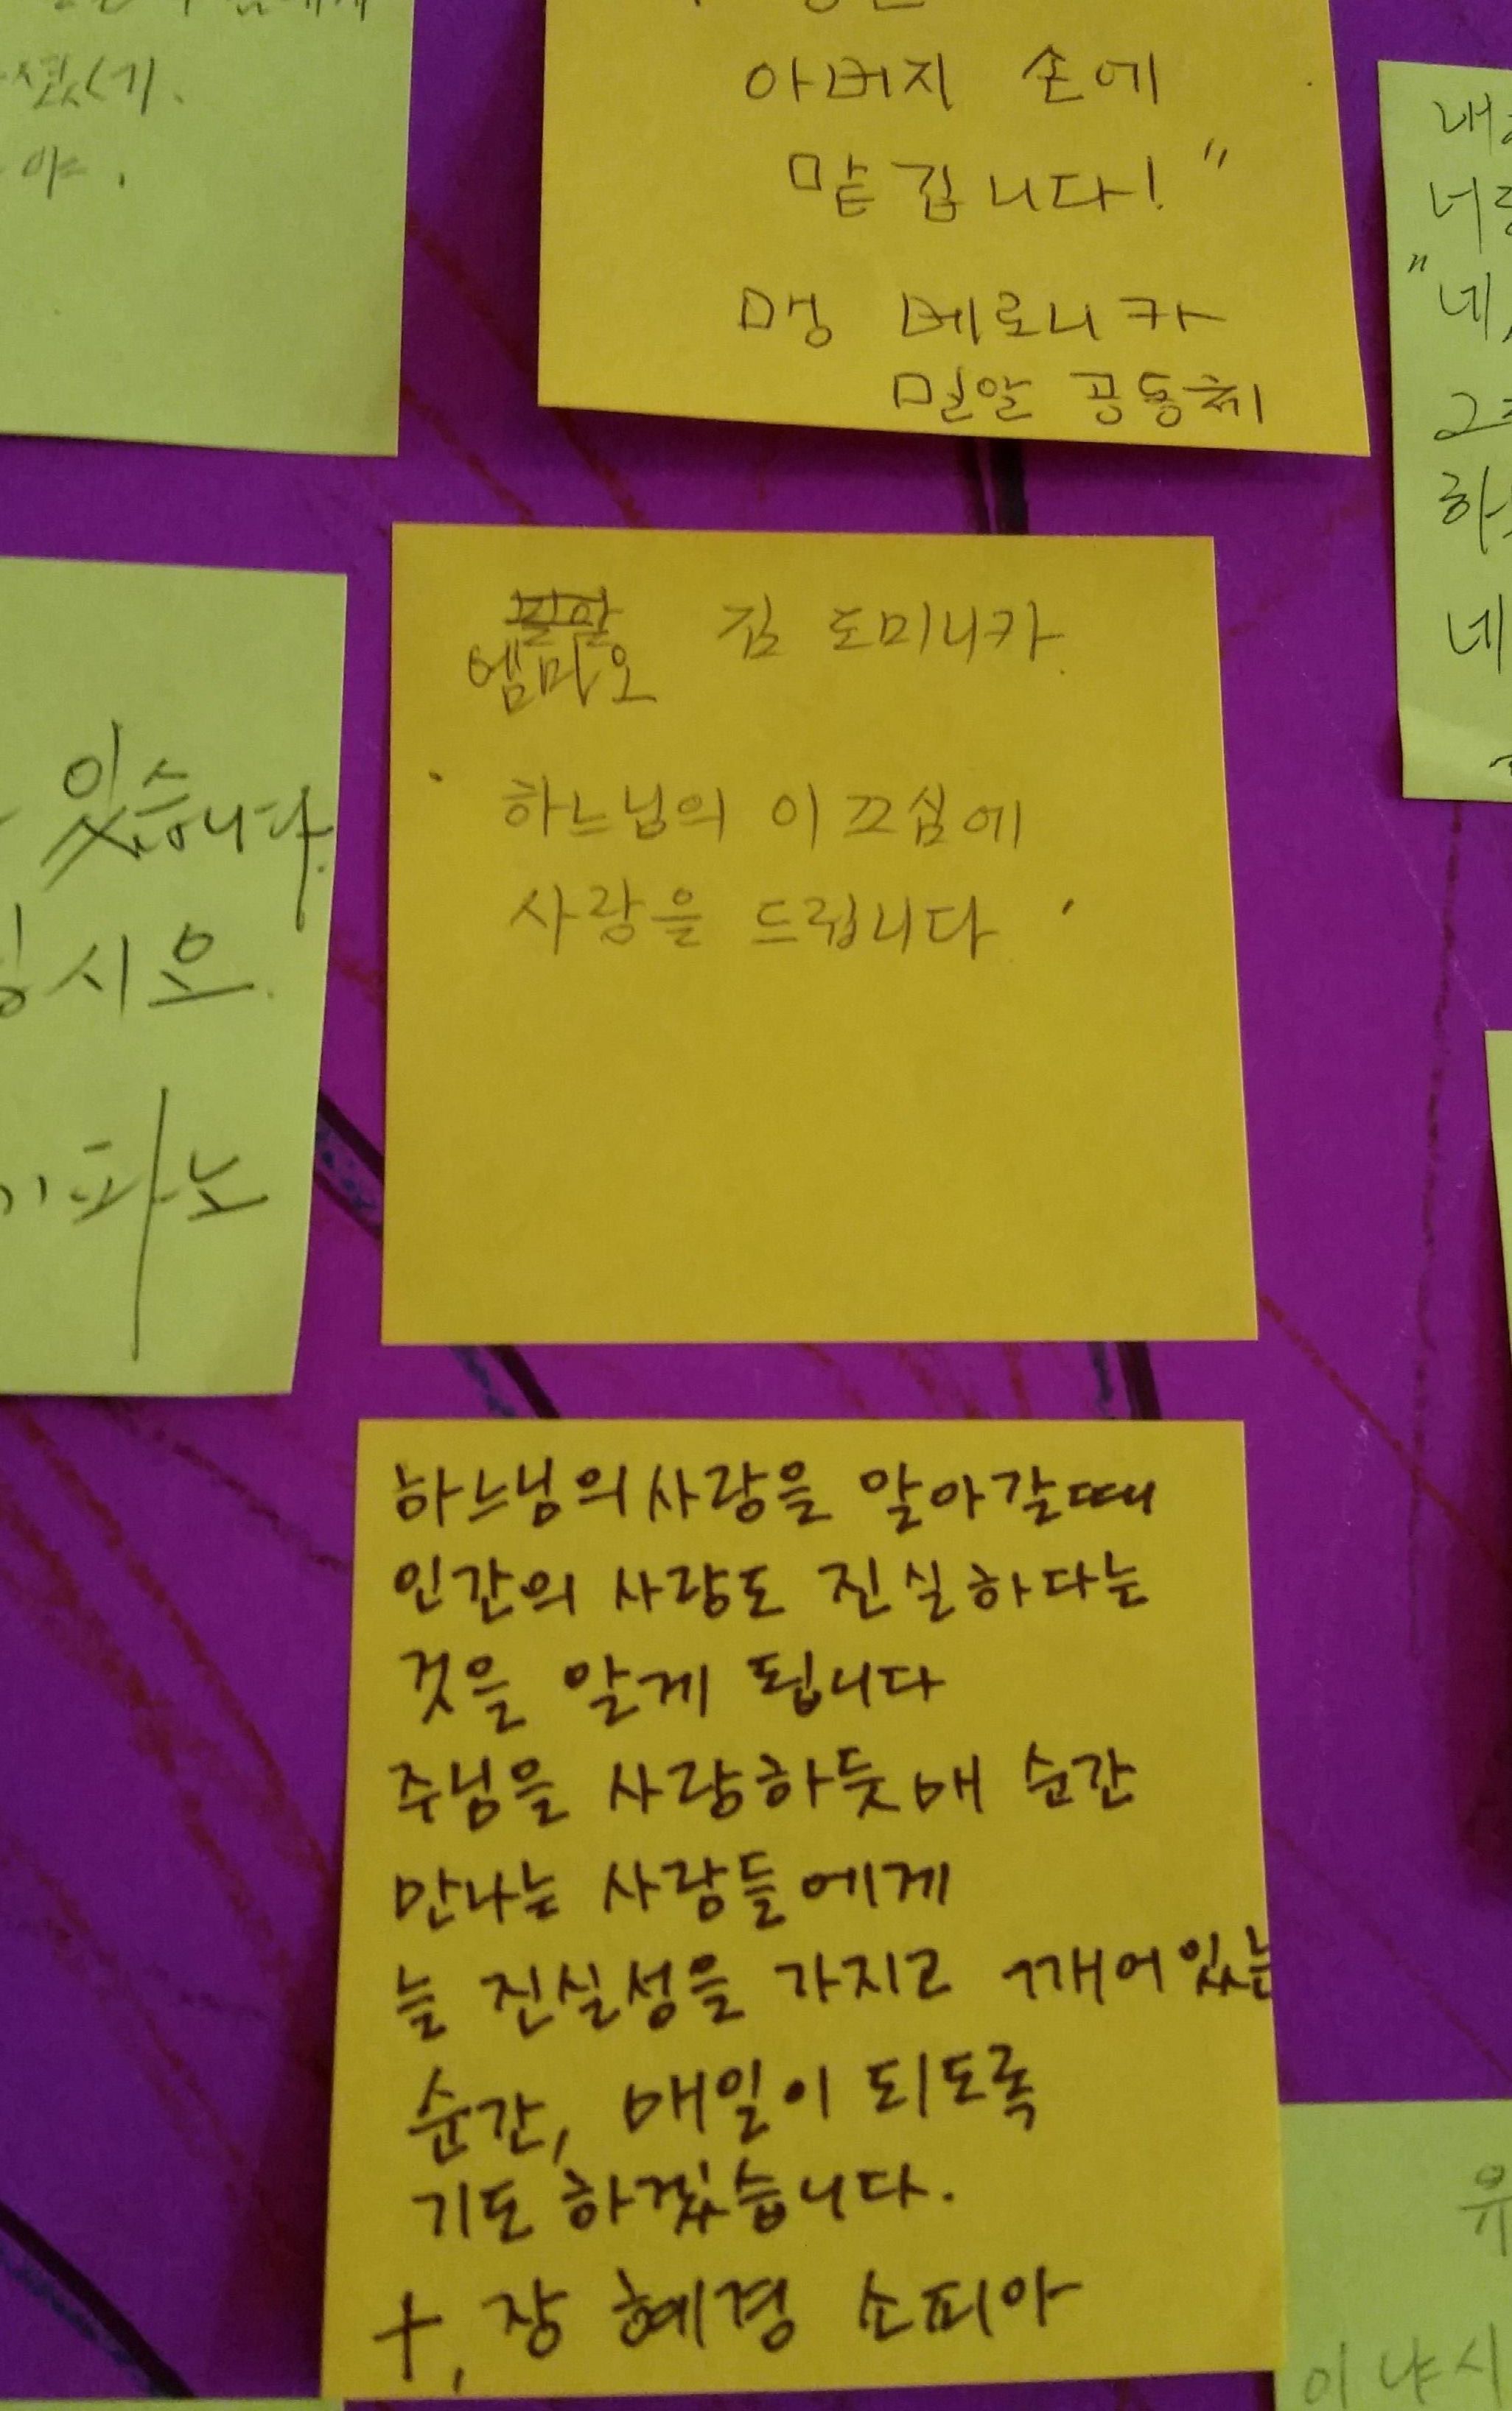 아버지 손에
맡깁니다!"
맹 베로니카
밀알 공동체
엠마오 김 도미니카
하느님의 이끄심에
사랑을 드립니다
하느님의 사랑을 알아갈때
인간의 사랑도 진실하다는
것을 알게 됩니다
주님을 사랑하듯 매 순간
만나는 사람들에게
늘 진실성을 가지고 깨어있는
순간, 매일이 되도록
기도 하겠습니다.
+, 장 혜경 소피아
있습니다.
십시오.
기파노
너랑
"네,
네
유
이냐시